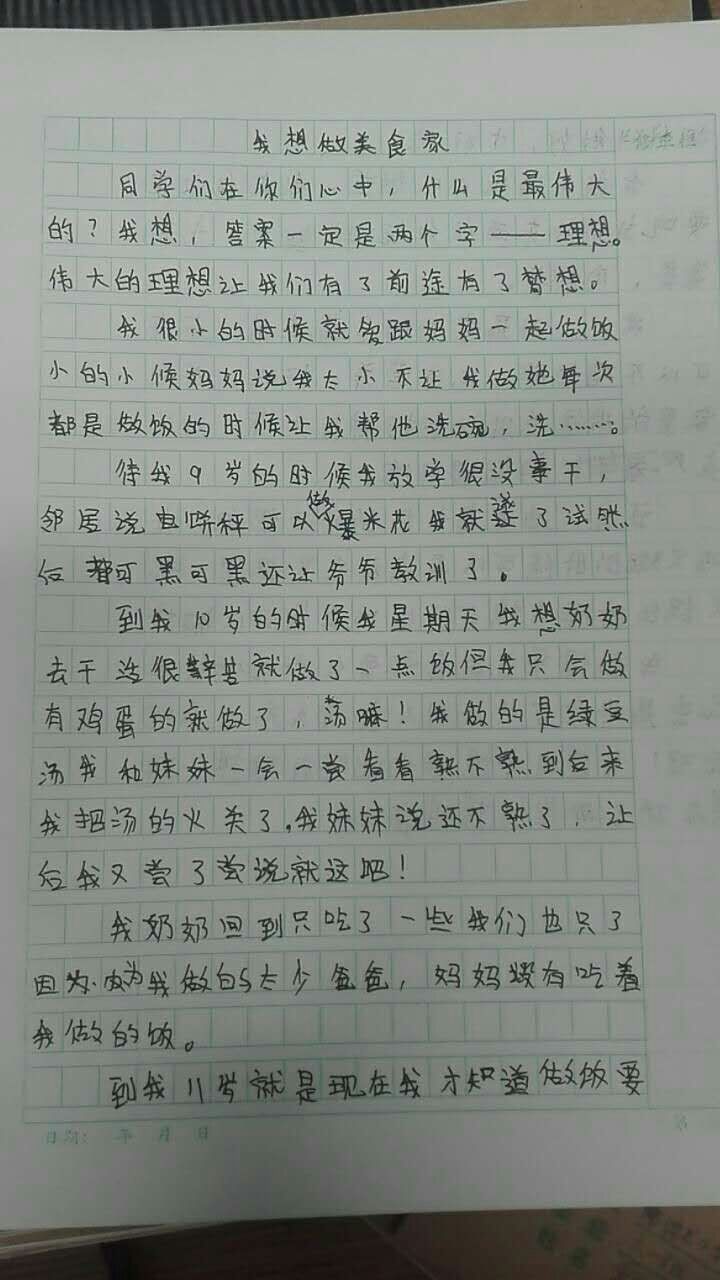 我想做美食家
同学们在你们心中，什么是最伟大
的？我想，答案一定是两个字——理想。
伟大的理想让我们有了前途有了梦想。
我很小的时候就爱跟妈妈一起做饭
小的小候妈妈说我太小不让我做她每次
都是做饭的时候让我帮他洗碗，洗……。
待我9岁的时候我放学很没事干，
邻居说电饼秤可以做爆米花我就逆了试然
后都可黑可黑还让爷爷教训了。
到我10岁的时候我星期天我想奶奶
去干活很辛苦就做了一点饭但我只会做
有鸡蛋的就做了，荡嘛！我做的是绿豆
汤我和妹妹一会一尝看看熟不熟到后来
我把汤的火关了，我妹妹说还不熟了，让
后我又尝了尝说就这吧！
我奶奶回到只吃了一些我们也只了
因为因为我做的太少爸爸，妈妈没有吃着
我做的饭。
到我11岁就是现在我才知道做饭要
日期： 年 月 日